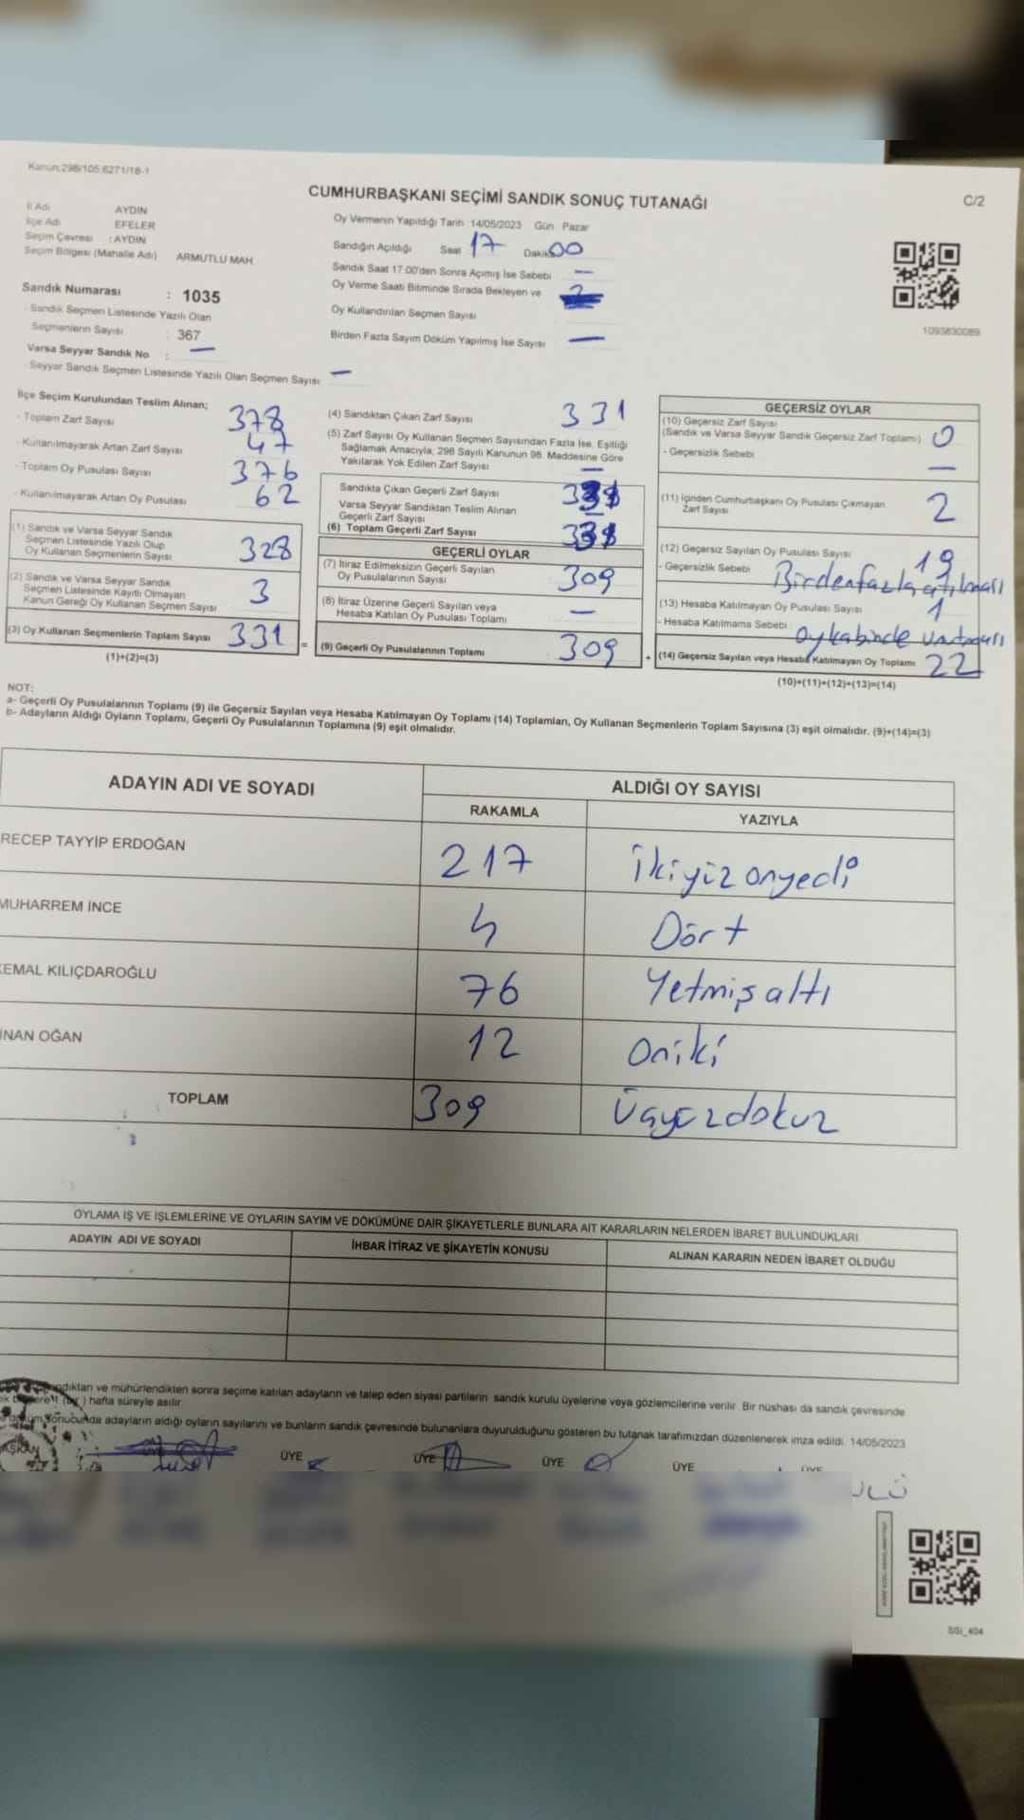 Kanun:298/105;6271/18-1
CUMHURBAŞKANI SEÇİMİ SANDIK SONUÇ TUTANAĞI
C/2
İl Adı AYDIN
İlçe Adı EFELER
Seçim Çevresi : AYDIN
Seçim Bölgesi (Mahalle Adı) ARMUTLU MAH.
Sandık Numarası : 1035
Sandık Seçmen Listesinde Yazılı Olan
Seçmenlerin Sayısı 367
Varsa Seyyar Sandık No : —
Seyyar Sandık Seçmen Listesinde Yazılı Olan Seçmen Sayısı —
Oy Vermenin Yapıldığı Tarih 14/05/2023 Gün Pazar
Sandığın Açıldığı Saat 17 Dakika 00
Sandık Saat 17:00'den Sonra Açılmış İse Sebebi —
Oy Verme Saati Bitiminde Sırada Bekleyen ve
Oy Kullandırılan Seçmen Sayısı
Birden Fazla Sayım Döküm Yapılmış İse Sayısı —
1093830089
İlçe Seçim Kurulundan Teslim Alınan;
- Toplam Zarf Sayısı 378
- Kullanılmayarak Artan Zarf Sayısı 47
- Toplam Oy Pusulası Sayısı 376
- Kullanılmayarak Artan Oy Pusulası 62
(1) Sandık ve Varsa Seyyar Sandık
Seçmen Listesinde Yazılı Olup
Oy Kullanan Seçmenlerin Sayısı 328
(2) Sandık ve Varsa Seyyar Sandık
Seçmen Listesinde Kayıtlı Olmayan
Kanun Gereği Oy Kullanan Seçmen Sayısı 3
(3) Oy Kullanan Seçmenlerin Toplam Sayısı 331 =
(1)+(2)=(3)
(4) Sandıktan Çıkan Zarf Sayısı 331
(5) Zarf Sayısı Oy Kullanan Seçmen Sayısından Fazla İse, Eşitliği
Sağlamak Amacıyla, 298 Sayılı Kanunun 98. Maddesine Göre
Yakılarak Yok Edilen Zarf Sayısı —
Sandıkta Çıkan Geçerli Zarf Sayısı
Varsa Seyyar Sandıktan Teslim Alınan
Geçerli Zarf Sayısı —
(6) Toplam Geçerli Zarf Sayısı
GEÇERLİ OYLAR
(7) İtiraz Edilmeksizin Geçerli Sayılan
Oy Pusulalarının Sayısı 309
(8) İtiraz Üzerine Geçerli Sayılan veya
Hesaba Katılan Oy Pusulası Toplamı —
(9) Geçerli Oy Pusulalarının Toplamı 309 +
GEÇERSİZ OYLAR
(10) Geçersiz Zarf Sayısı
(Sandık ve Varsa Seyyar Sandık Geçersiz Zarf Toplamı) 0
- Geçersizlik Sebebi —
(11) İçinden Cumhurbaşkanı Oy Pusulası Çıkmayan
Zarf Sayısı 2
(12) Geçersiz Sayılan Oy Pusulası Sayısı 19
- Geçersizlik Sebebi Birden fazla atılması
(13) Hesaba Katılmayan Oy Pusulası Sayısı 1
- Hesaba Katılmama Sebebi oy kabinde
(14) Geçersiz Sayılan veya Hesaba Katılmayan Oy Toplamı 22
(10)+(11)+(12)+(13)=(14)
NOT:
a- Geçerli Oy Pusulalarının Toplamı (9) ile Geçersiz Sayılan veya Hesaba Katılmayan Oy Toplamı (14) Toplamları, Oy Kullanan Seçmenlerin Toplam Sayısına (3) eşit olmalıdır. (9)+(14)=(3)
b- Adayların Aldığı Oyların Toplamı, Geçerli Oy Pusulalarının Toplamına (9) eşit olmalıdır.
ADAYIN ADI VE SOYADI ALDIĞI OY SAYISI
RAKAMLA YAZIYLA
RECEP TAYYİP ERDOĞAN 217 İkiyüz onyedi
MUHARREM İNCE 4 Dört
KEMAL KILIÇDAROĞLU 76 Yetmiş altı
İNAN OĞAN 12 Oniki
TOPLAM 309 Üçyüzdokuz
OYLAMA İŞ VE İŞLEMLERİNE VE OYLARIN SAYIM VE DÖKÜMÜNE DAİR ŞİKAYETLERLE BUNLARA AİT KARARLARIN NELERDEN İBARET BULUNDUKLARI
ADAYIN ADI VE SOYADI İHBAR İTİRAZ VE ŞİKAYETİN KONUSU ALINAN KARARIN NEDEN İBARET OLDUĞU
ve mühürlendikten sonra seçime katılan adayların ve talep eden siyasi partilerin sandık kurulu üyelerine veya gözlemcilerine verilir. Bir nüshası da sandık çevresinde
hafta süreyle asılır.
sonucunda adayların aldığı oyların sayılarını ve bunların sandık çevresinde bulunanlara duyurulduğunu gösteren bu tutanak tarafımızdan düzenlenerek imza edildi. 14/05/2023
BAŞKAN ÜYE ÜYE ÜYE ÜYE ÜYE
SSI_404